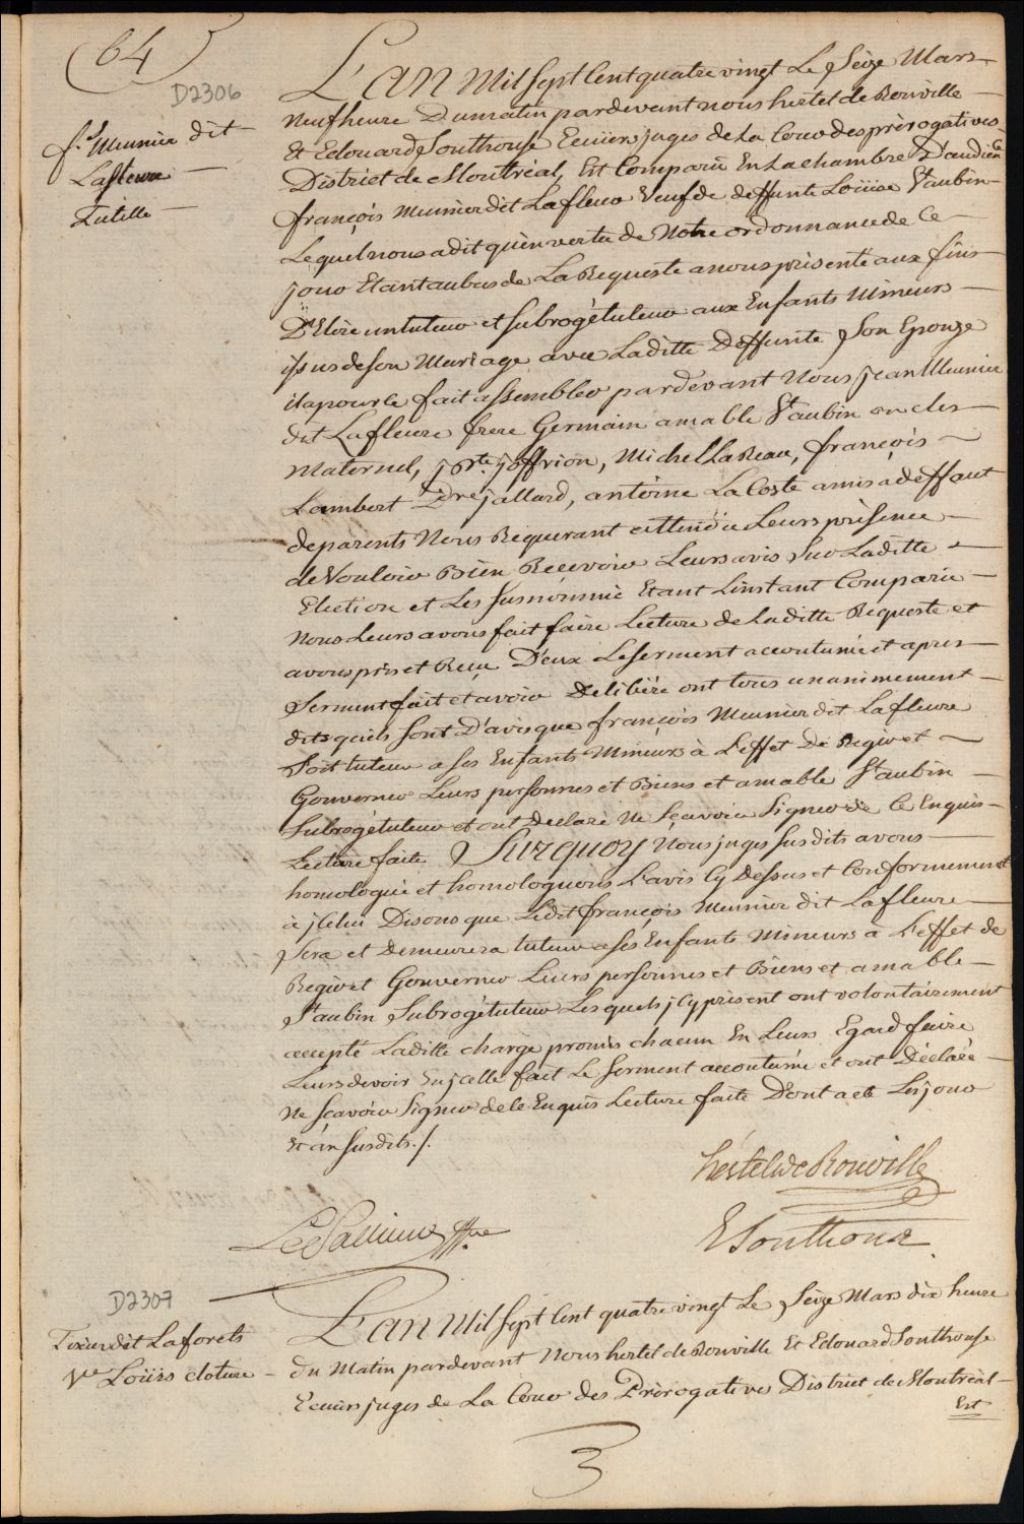 64
D2306
fs. Meunier dit
Lafleure
Tutelle
L'an Mil sept Cent quatre vingt Le Seize Mars
Neuf heure Du matin pardevant nous hertel de Rouville
Et Edouard Southouse Ecuiers juges de La Cour des prérogatives
District de Montréal, Est Comparû En La chambre D'audience
françois Meunier dit Lafleur Veuf de deffunte Loüise St aubin
Lequel nous a dit qu'en vertu de Notre ordonnance de Ce
jour Etant au bas de La Requeste a nous présenté aux fins
D'Elire un tuteur et subrogé tuteur aux Enfants Mineurs
issus de son Mariage avec Laditte Deffunte Son Epouze
il a pour ce fait assembler pardevant Nous jean Meunier
dit Lafleure frere Germain amable St aubin oncles
Maternel, jos.te joffrion, Michel Lareau, françois
Lambert Dre jallard, antoine LaCoste amis a deffaut
de parents Nous Requerant attendu Leurs présence
de Vouloir Bien Recevoir Leurs avis Sur Laditte
Election et Les susnommé Etant Linstant Comparu
Nous Leurs avons fait faire Lecture de Laditte Requeste et
avons pris et Reçu D'eux Le serment accoutumé et apres
Serment fait et avoir Deliberé ont tous unanimement
dits quils sont D'avis que françois Meunier dit Lafleure
Soit tuteur a ses Enfants Mineurs à L'effet De Regir et
Gouverner Leurs personnes et Biens et amable St aubin
Subrogé tuteur et ont declaré Ne sçavoir Signer de Ce Enquis
Lecture faite Surquoy Nous juges susdits avons
homologué et homologuons L'avis Cy Dessus et Conformement
à jcelui Disons que Ledit françois Meunier dit Lafleure
Sera et demeurera tuteur a ses Enfants Mineurs à L'effet de
Regir et Gouverner Leurs personnes et Biens et amable
St aubin Subrogé tuteur Lesquels jcy présent ont volontairement
accepté Laditte charge promis chacun En Leurs Egard faire
Leurs devoir En jcelle fait Le serment accoutumé et ont Déclaré
Ne sçavoir Signer de Ce Enquis Lecture faite Dont acte Les jour
Et an susdits ./.
hertel de Rouville
E Southouse
D2307
Tixier dit Laforets
Ve Loüis cloture
L'an Mil sept Cent quatre vingt Le Seize Mars dix heure
du Matin pardevant Nous hertel de Rouville Et Edouard Southouse
Ecuiers juges de La Cour des Prérogatives District de Montréal
Est
3